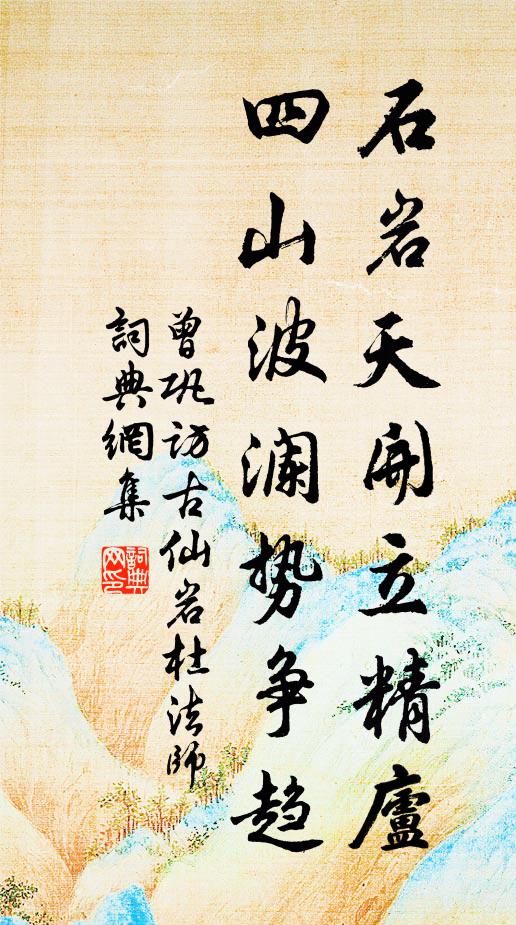 石岩天開立精廬
四山波澜势争趋
曾巩访古仙岩杜法師
詞典網集
詞典網印